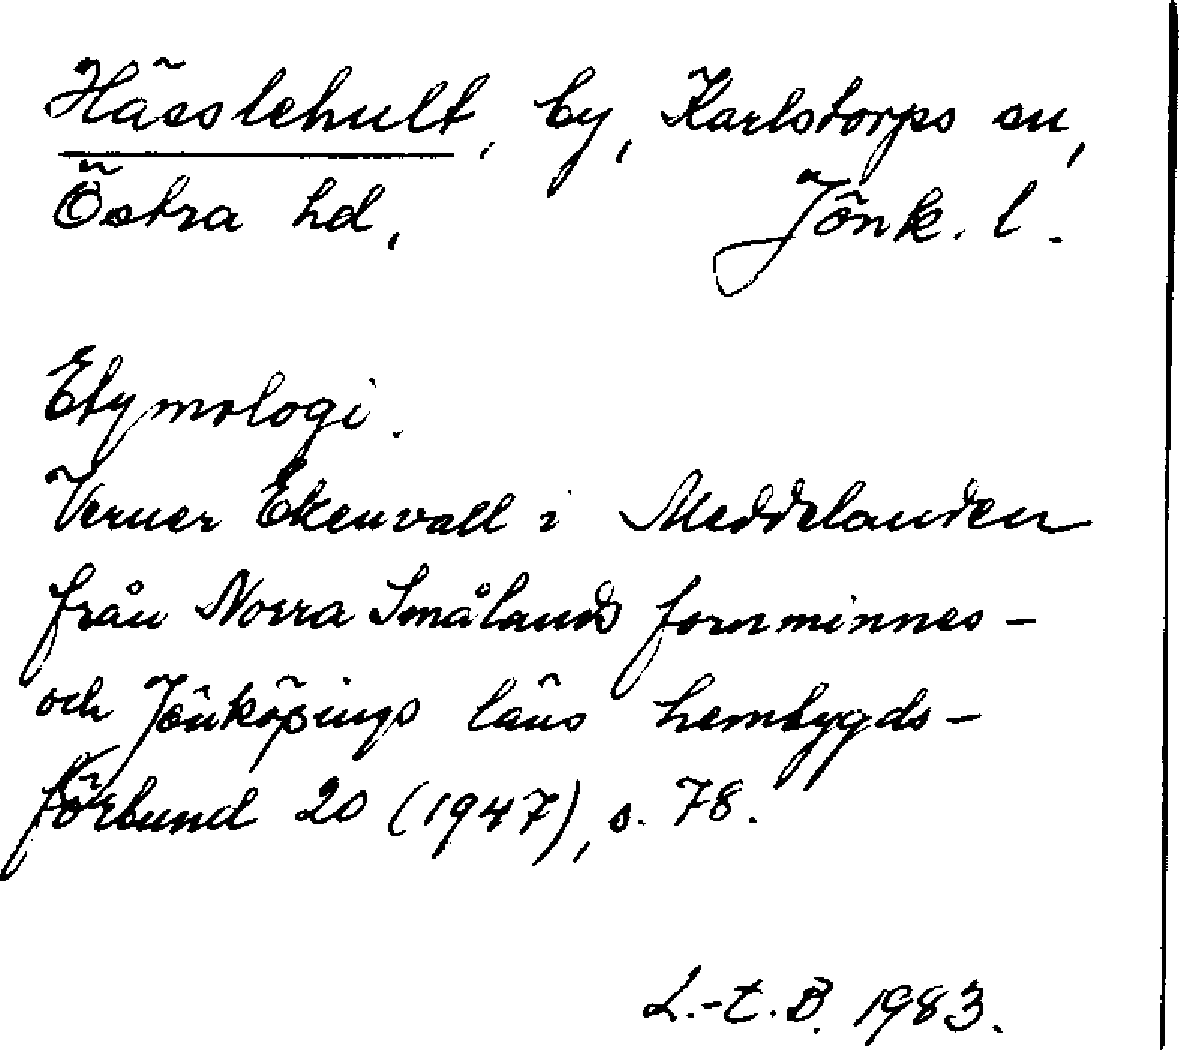 Hässlehult, by, Karlstorps sn,
Östra hd, Jönk. l.
Etymologi.
Verner Ekenvall i Meddelanden
från Norra Smålands fornminnes-
och Jönköpings läns hembygds-
förbund 20 (1947), s. 78.
L.-t. B. 1983.